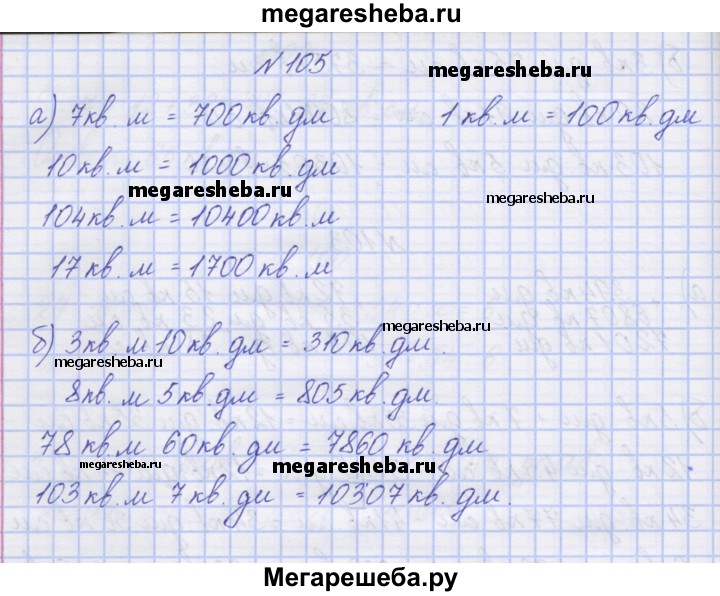 megaresheba.ru
№ 105
megaresheba.ru
а) 7кв. м = 700кв. дм 1 кв. м = 100кв. дм
10кв. м = 1000кв. дм
megaresheba.ru
megaresheba.ru
104кв. м = 10400кв. м
17кв. м = 1700кв. м
megaresheba.ru
б) 3кв м 10кв. дм = 310кв. дм.
megaresheba.ru
8кв. м 5кв. дм = 805кв. дм.
78 кв. м 60кв. дм = 7860 кв. дм
megaresheba.ru
megaresheba.ru
103кв. м 7 кв. дм = 10307кв. дм.
Мегарешеба.ру